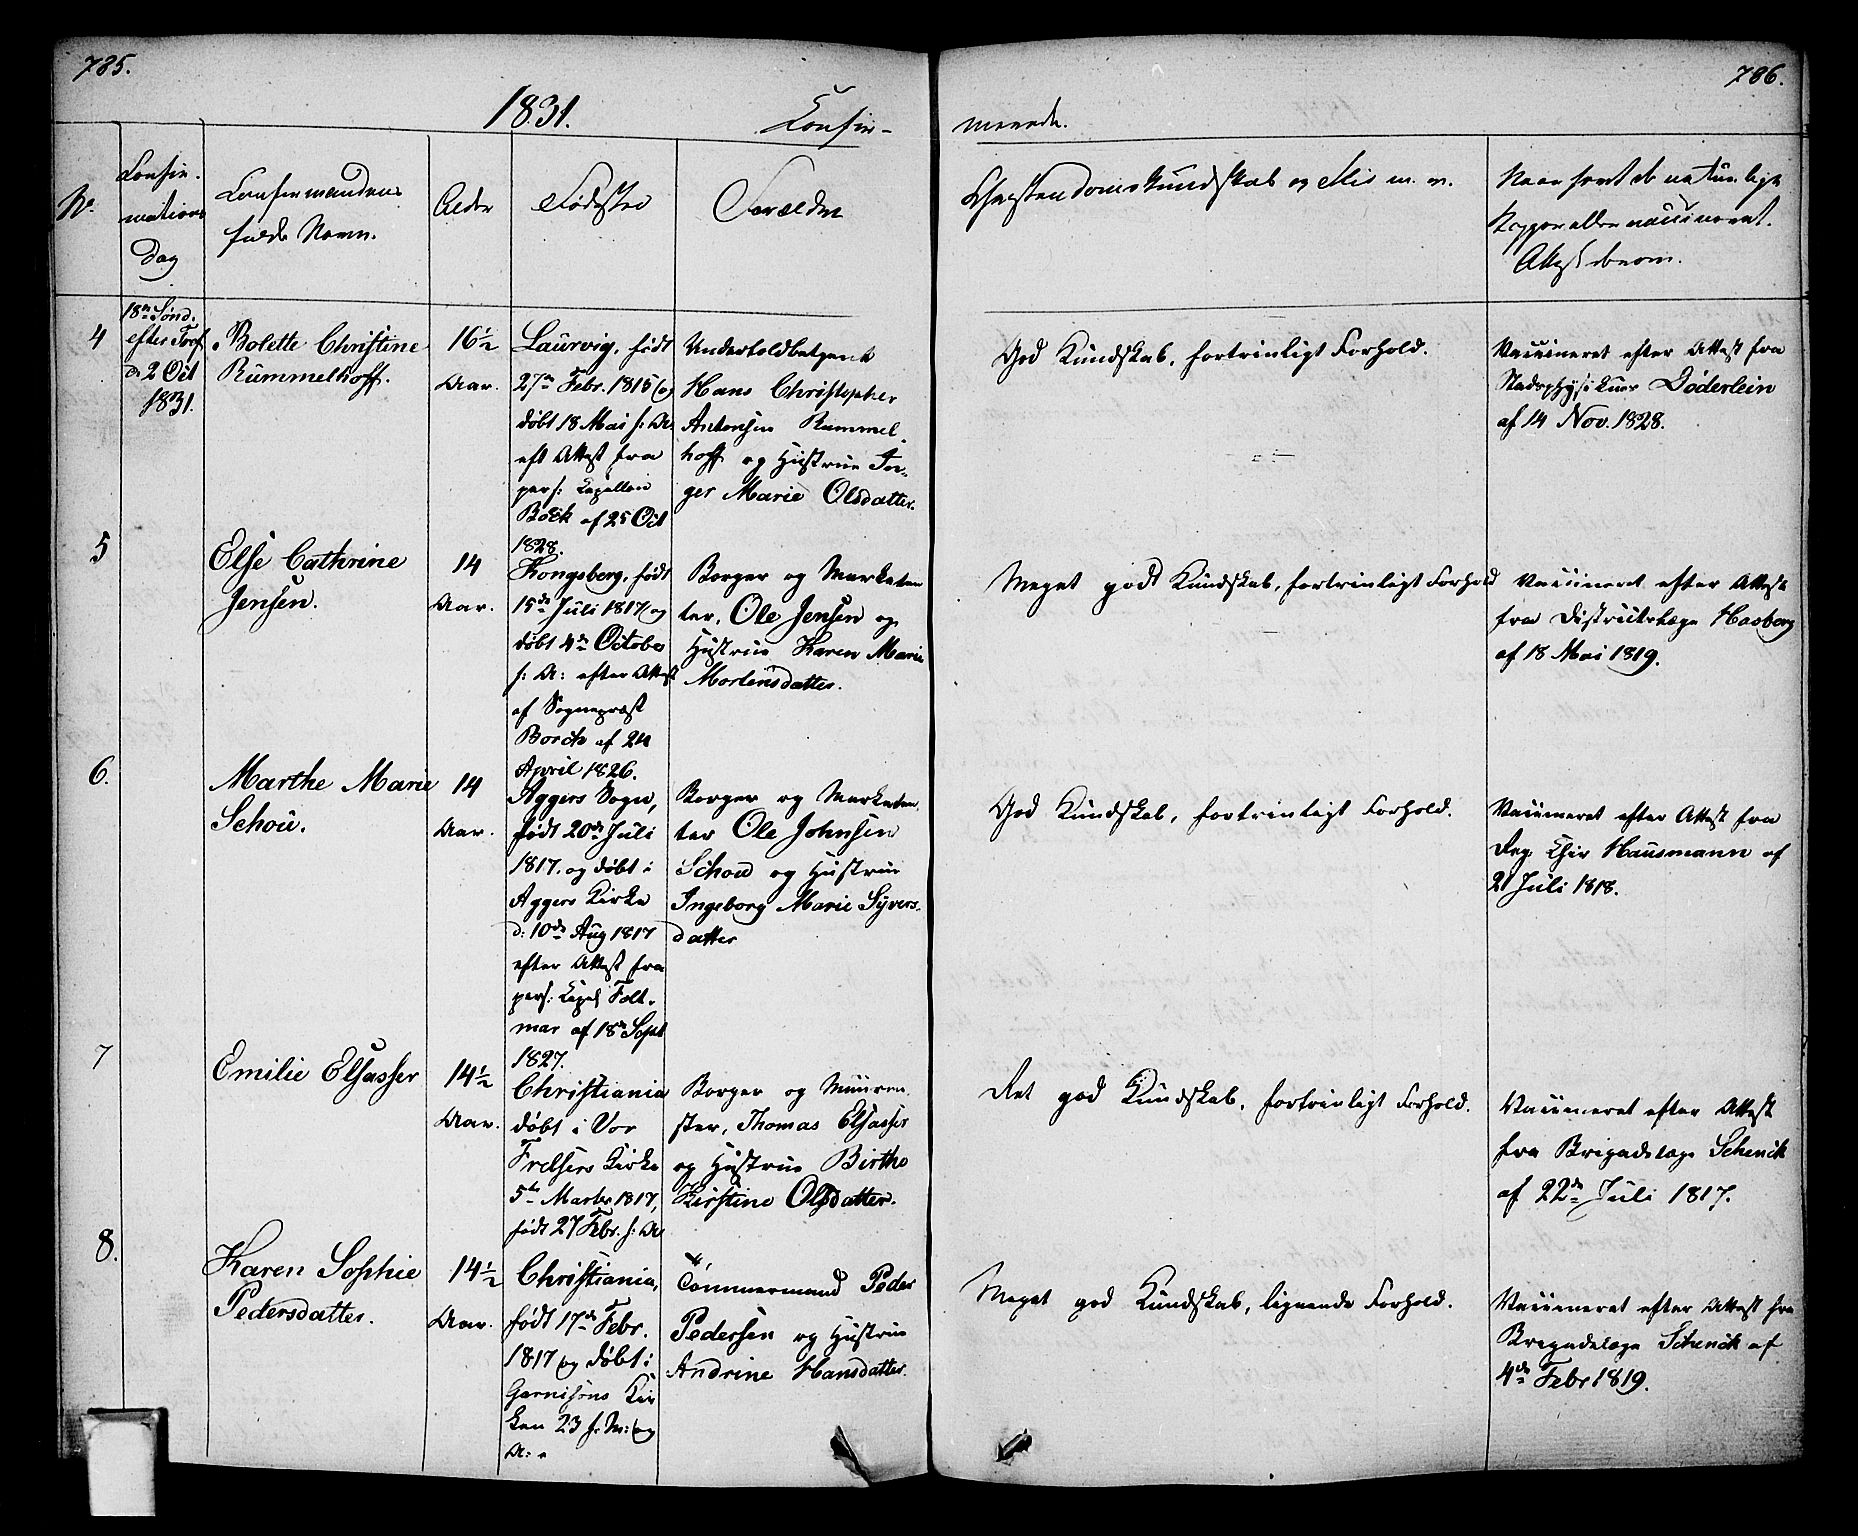 785.
1831.
Confir-
No.
Confir-
mations
Dag
Confirmandens
fulde Navn.
Alder
Fødested
Forældre
4
18de Sønd.
efter Tref.
d. 2 Oct
1831.
Bolette Christine
Rummelhoff.
16½
Aar.
Laurvig, født
27de Febr. 1815 og
døbt 18 Mai s: A:
eft Attest fra
pers: Capellan
Boeck af 25 Oct
1828.
Undertoldbetjent
Hans Christopher
Antonsen Rummel-
hoff og Hustrue In-
ger Marie Olsdatter.
5
Else Cathrine
Jensen.
14
Aar.
Kongsberg, født
15de Juli 1817 og
døbt 4de October
s: A: efter Attest
af Sognepræst
Borch af 24
April 1826.
Borger og Marketen
ter, Ole Jensen og
Hustrue Karen Marie
Mortensdatter.
6.
Marthe Marie
Schou.
14
Aar.
Aggers Sogn,
født 20de Juli
1817. og døbt i
Aggers Kirke
d: 10de Aug 1817
efter Attest fra
pers: Capel Folt-
mar af 18de Sept
1827.
Borger og Marketen
ter Ole Johnsen
Schou og Hustrue
Ingeborg Marie Syvers-
datter
7
Emilie Elsasser
14½
Aar.
Christiania
døbt i Vor
Frelsers Kirke
5te Marts 1817,
født 27 Febr. s: A:
Borger og Muurme
ster, Thomas Elsasser
og Hustrue Birthe
Kirstine Olsdatter.
8.
Karen Sophie
Pedersdatter.
14½
Aar.
Christiania,
født 17de Febr.
1817 og døbt i
Garnisons Kir
ken 23 s: M: og
A:
Tömmermand Peder
Pedersen og Hustrue
Andrine Hansdatter.
786.
merede.
Christendomskundskab og Flid m. v.
Naar havt de naturlige
Kopper eller vaccineret.
Attest derom.
God Kundskab, fortrinligt Forhold.
Vaccineret efter Attest fra
Stadsphysikus Døderlein
af 14 Nov. 1828.
Meget godt Kundskab, fortrinligt Forhold
Vaccineret efter Attest
fra Districtslæge Hasberg
af 18 Mai 1819.
God Kundskab, fortrinligt Forhold.
Vaccineret efter Attest fra
Reg. Chir Hausmann af
21 Juli 1818.
Ret god Kundskab, fortrinligt Forhold.
Vaccineret efter Attest
fra Brigadelæge Schenck
af 22de Juli 1817.
Meget god Kundskab, lignende Forhold.
Vaccineret efter Attest fra
Brigadelæge Schenck af
4de Febr 1819.